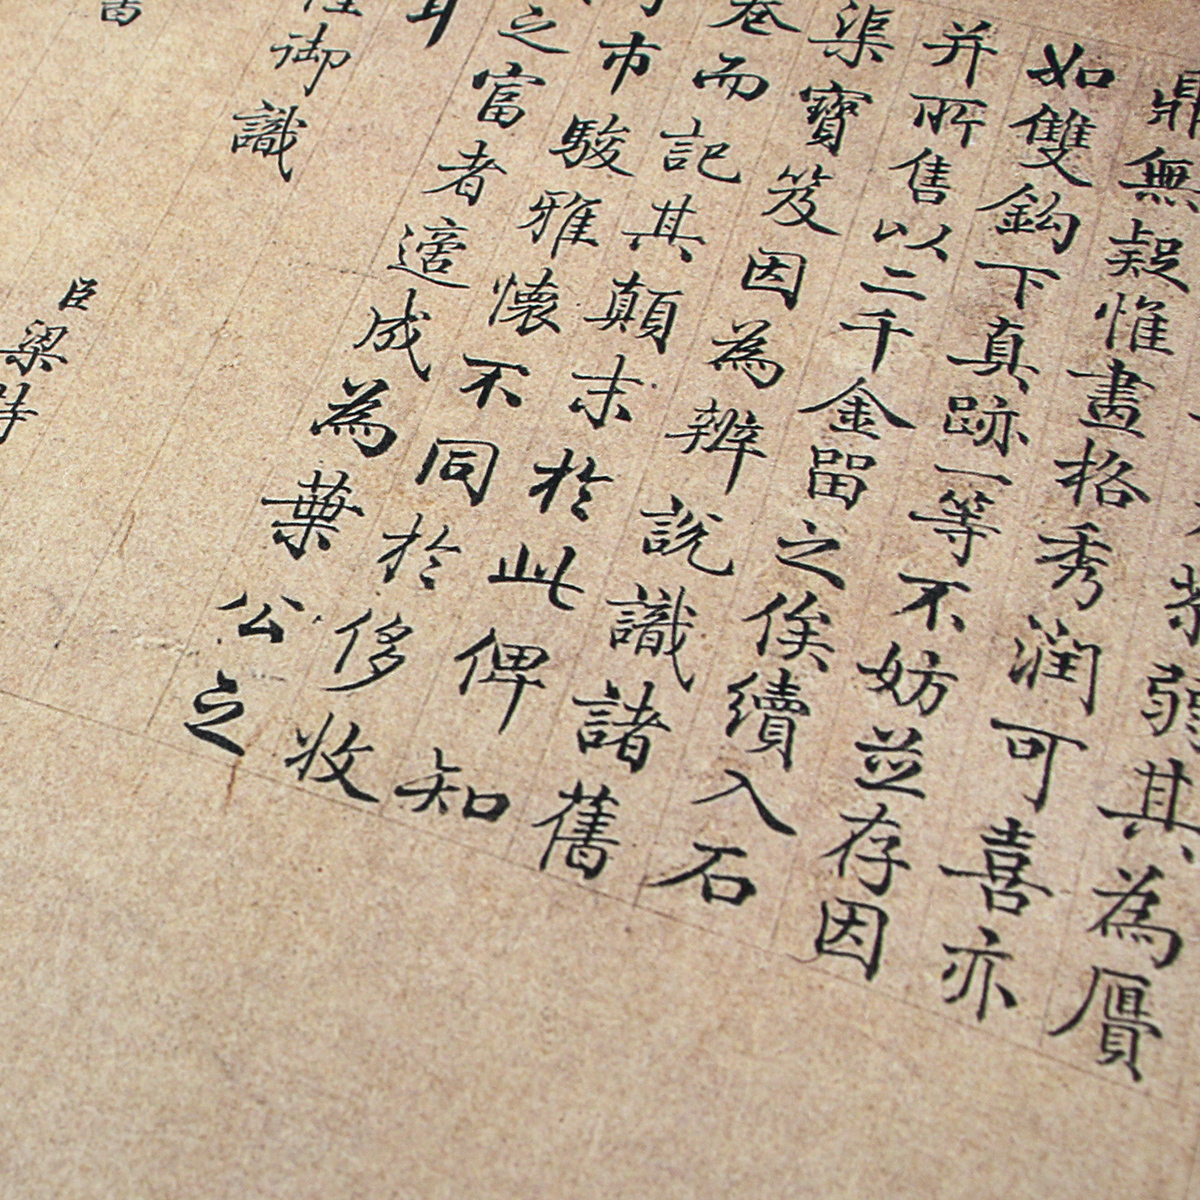 弱其為贗
鼎無疑惟畫格秀潤可喜亦
如雙鈎下真跡一等不妨並存因
并所售以二千金留之俟續入石
渠寶笈因為辨說識諸舊
卷而記其顛末於此俾知
市駿雅懷不同於侈收
之富者適成為葉公之
耳
御識
臣梁